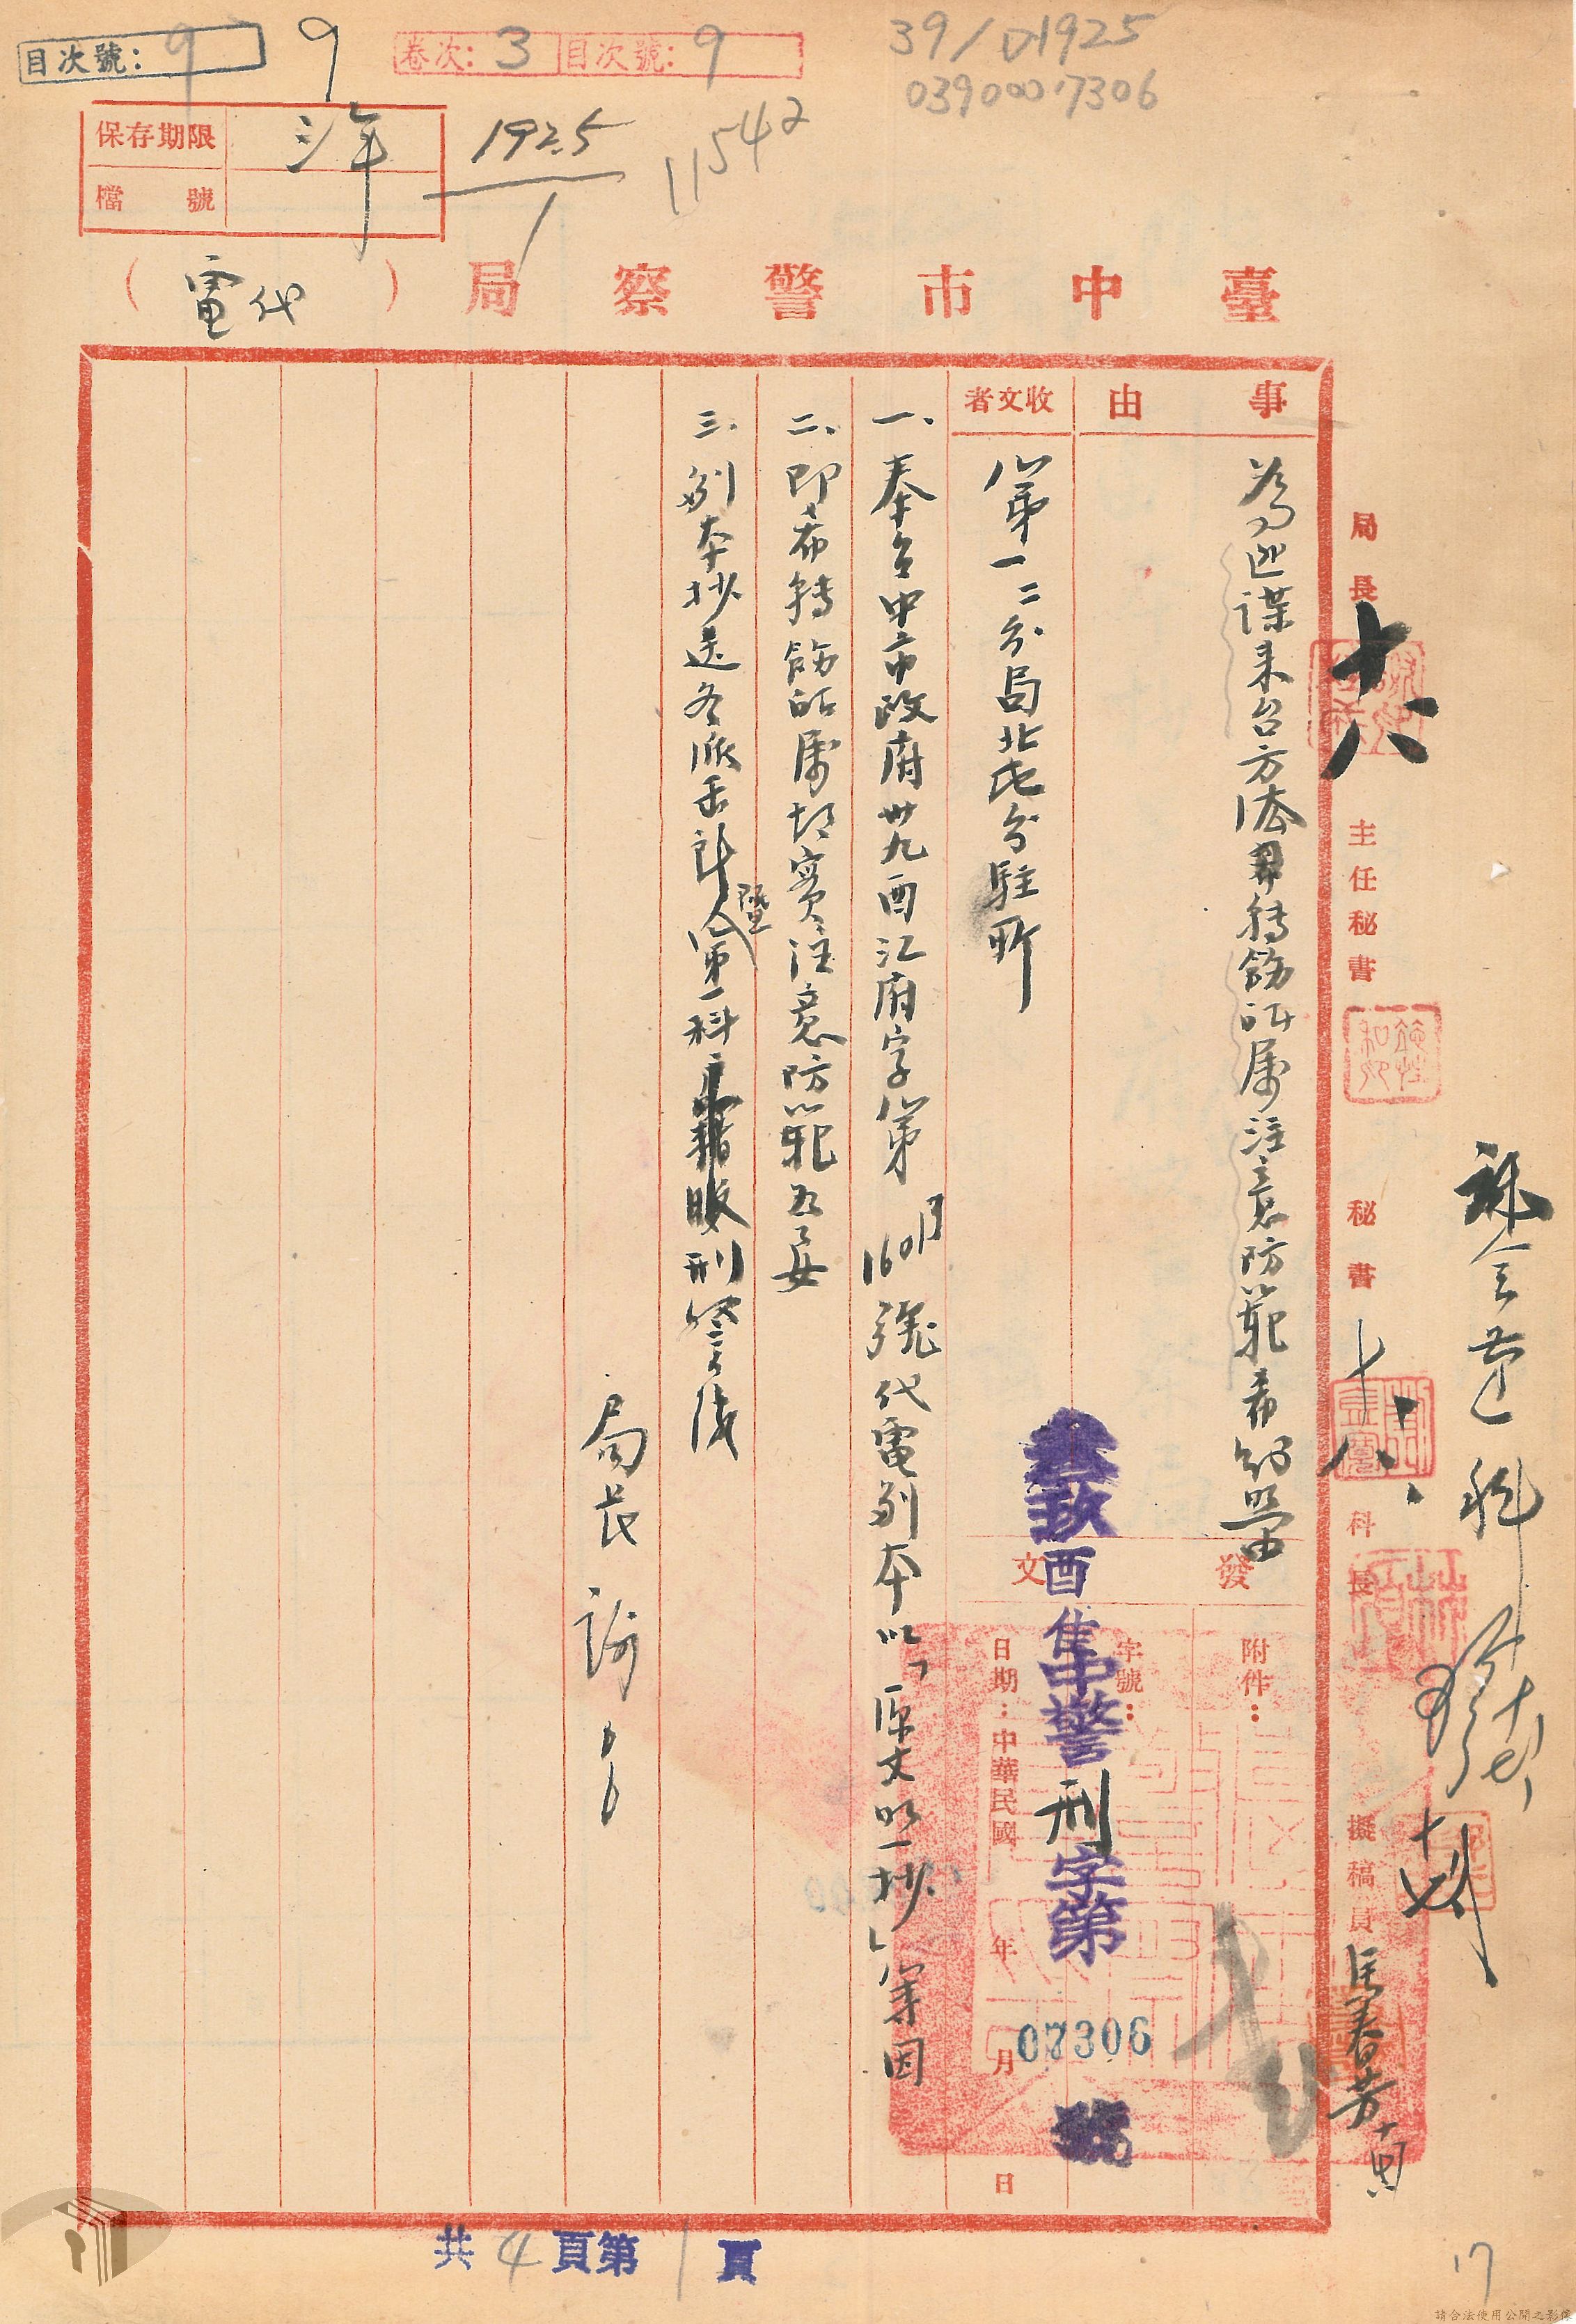 目次號：9
9
卷次：3 目次號：9
39/01925
0390007306
保存期限 三年
檔號
1925
1
11542
臺中市警察局（代電）
事由
為匪諜來台方法希轉飭所屬注意防範希知照由
收文者
第一二分局北屯分駐所
發文
附件：
字號：
叁玖酉 中警刑字第07306號
日期：中華民國 年 月 日
一、奉台中市政府卅九酉江府字第 號代電副本以「原文照抄」等因
二、即希轉飭所屬切實注意防範為要
三、副本抄送各派出所暨第一科刑警隊
局長
局長
十六
主任秘書
秘書
科長
擬稿員
共4頁第1頁
17
請合法使用公開之影像